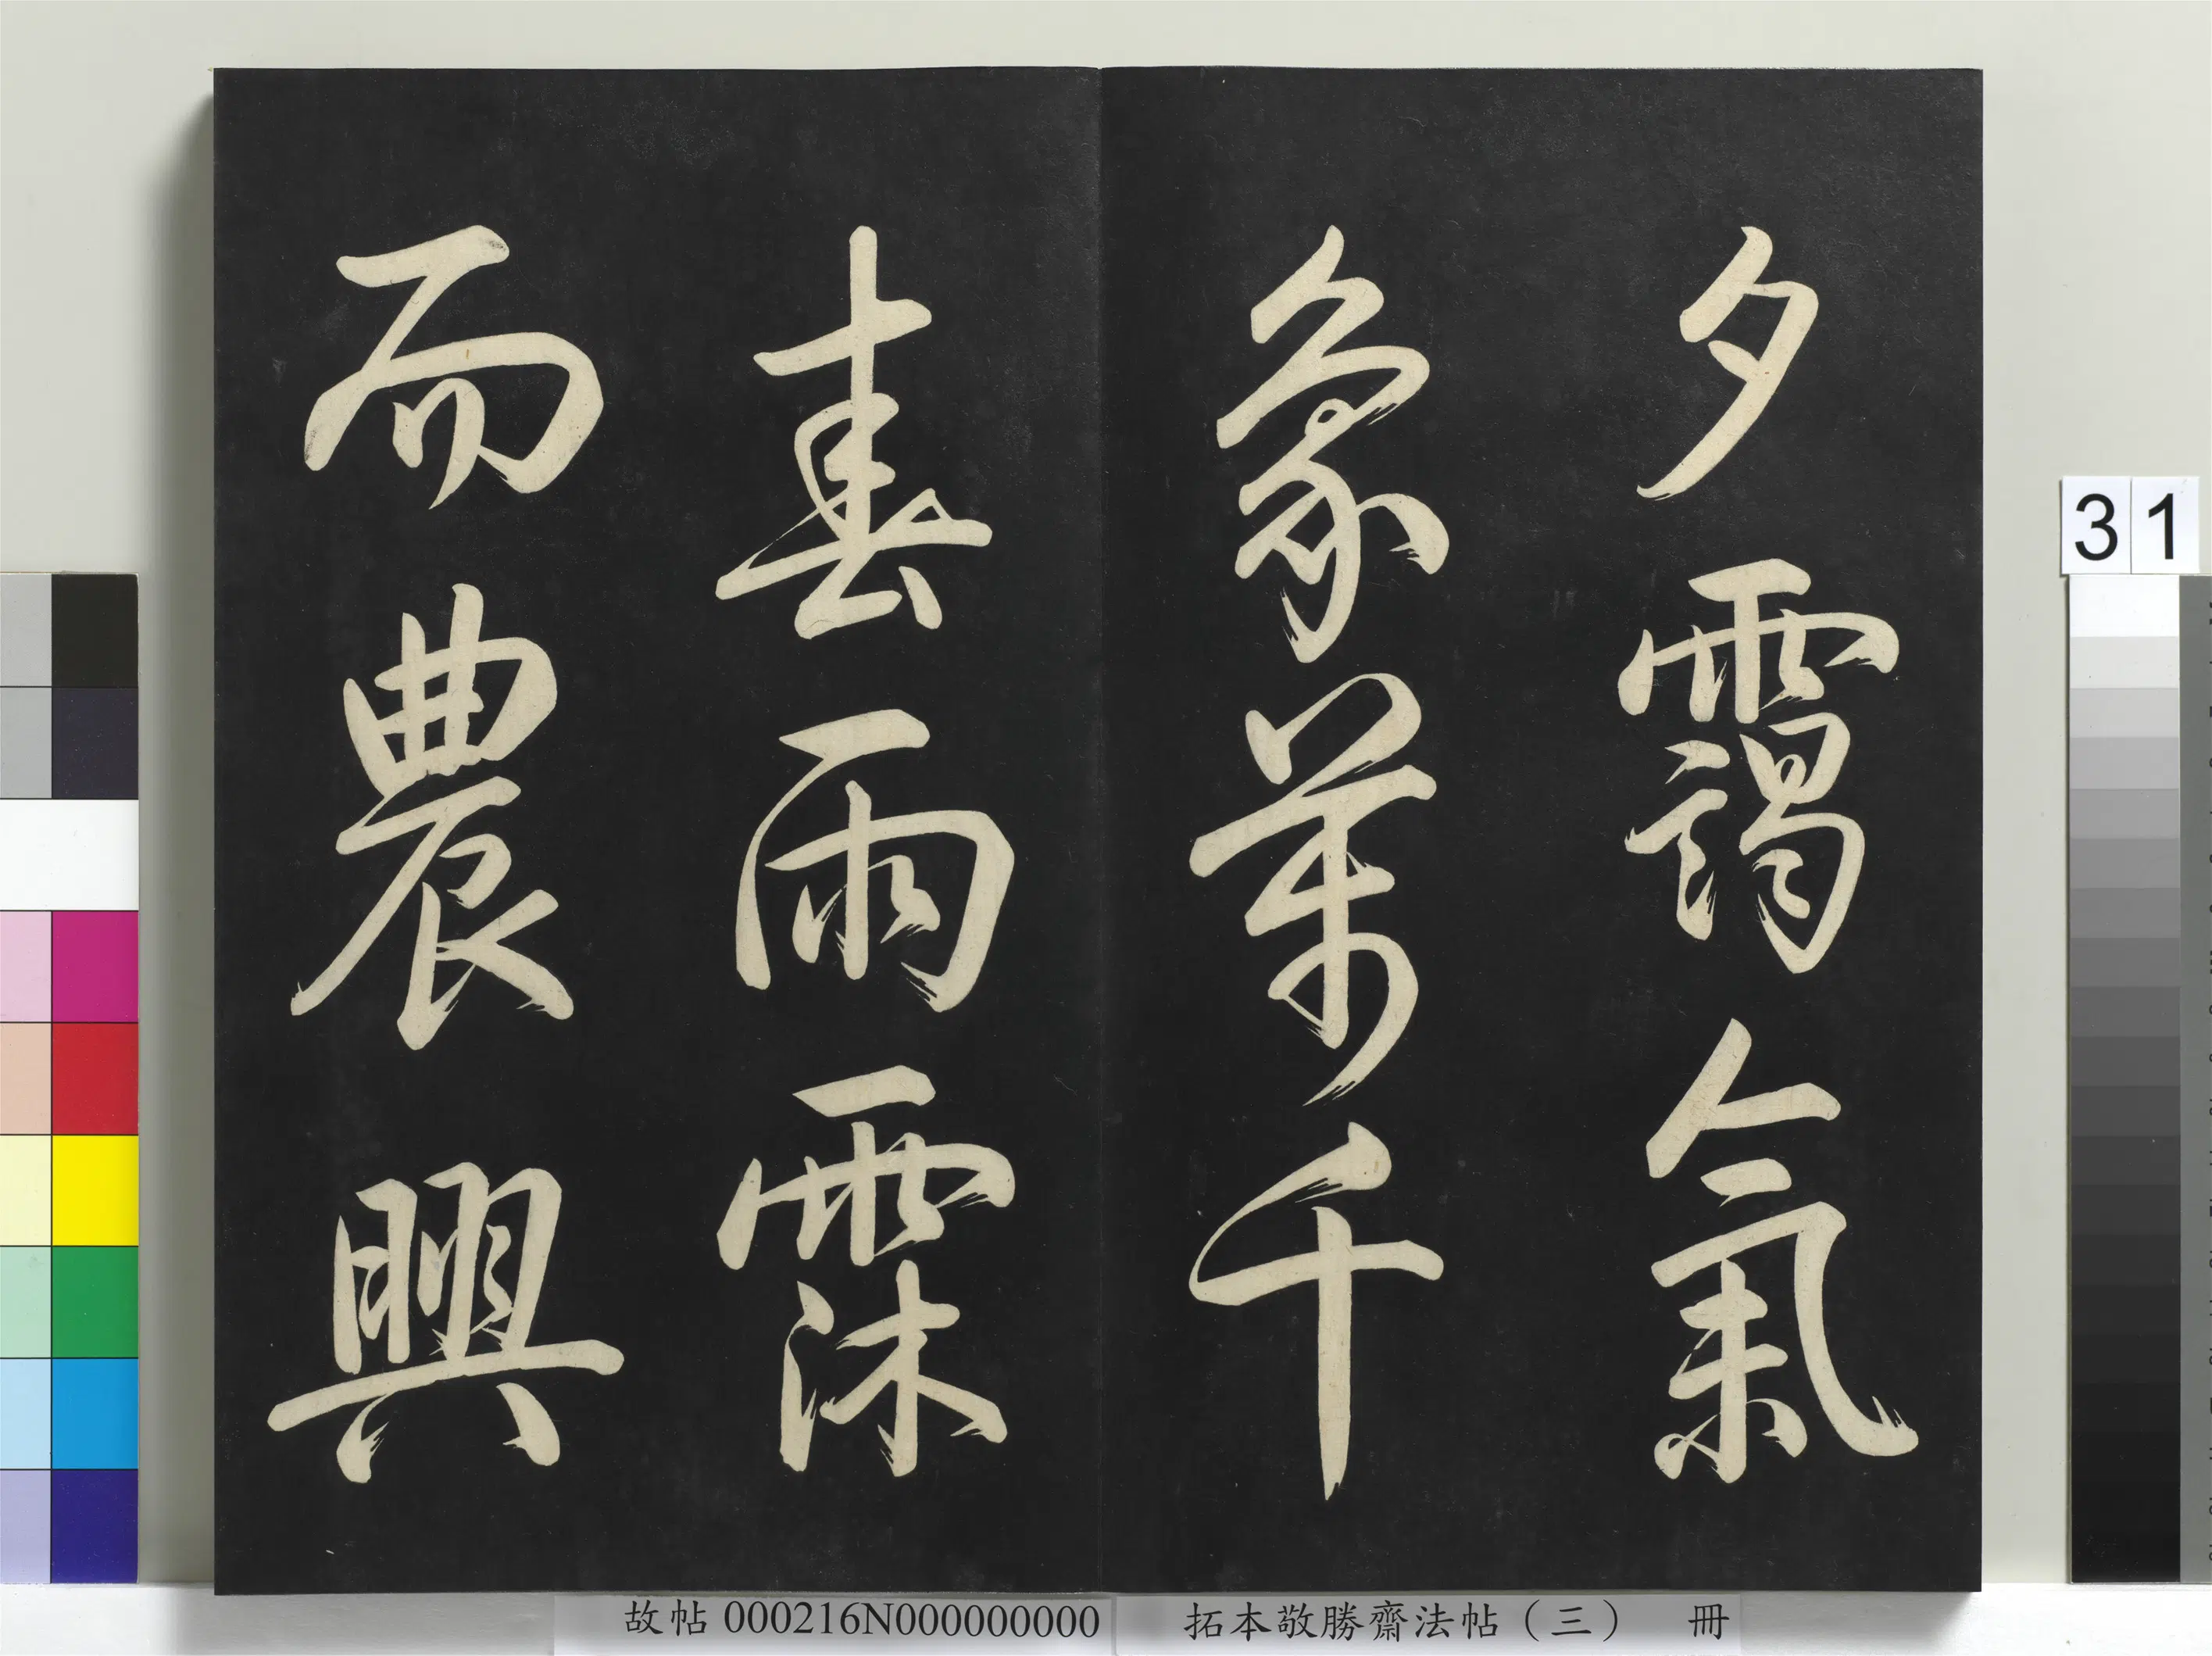 夕靄氣
象萬千
春雨霂
而農興
31
故帖 000216N000000000
拓本敬勝齋法帖（三） 冊